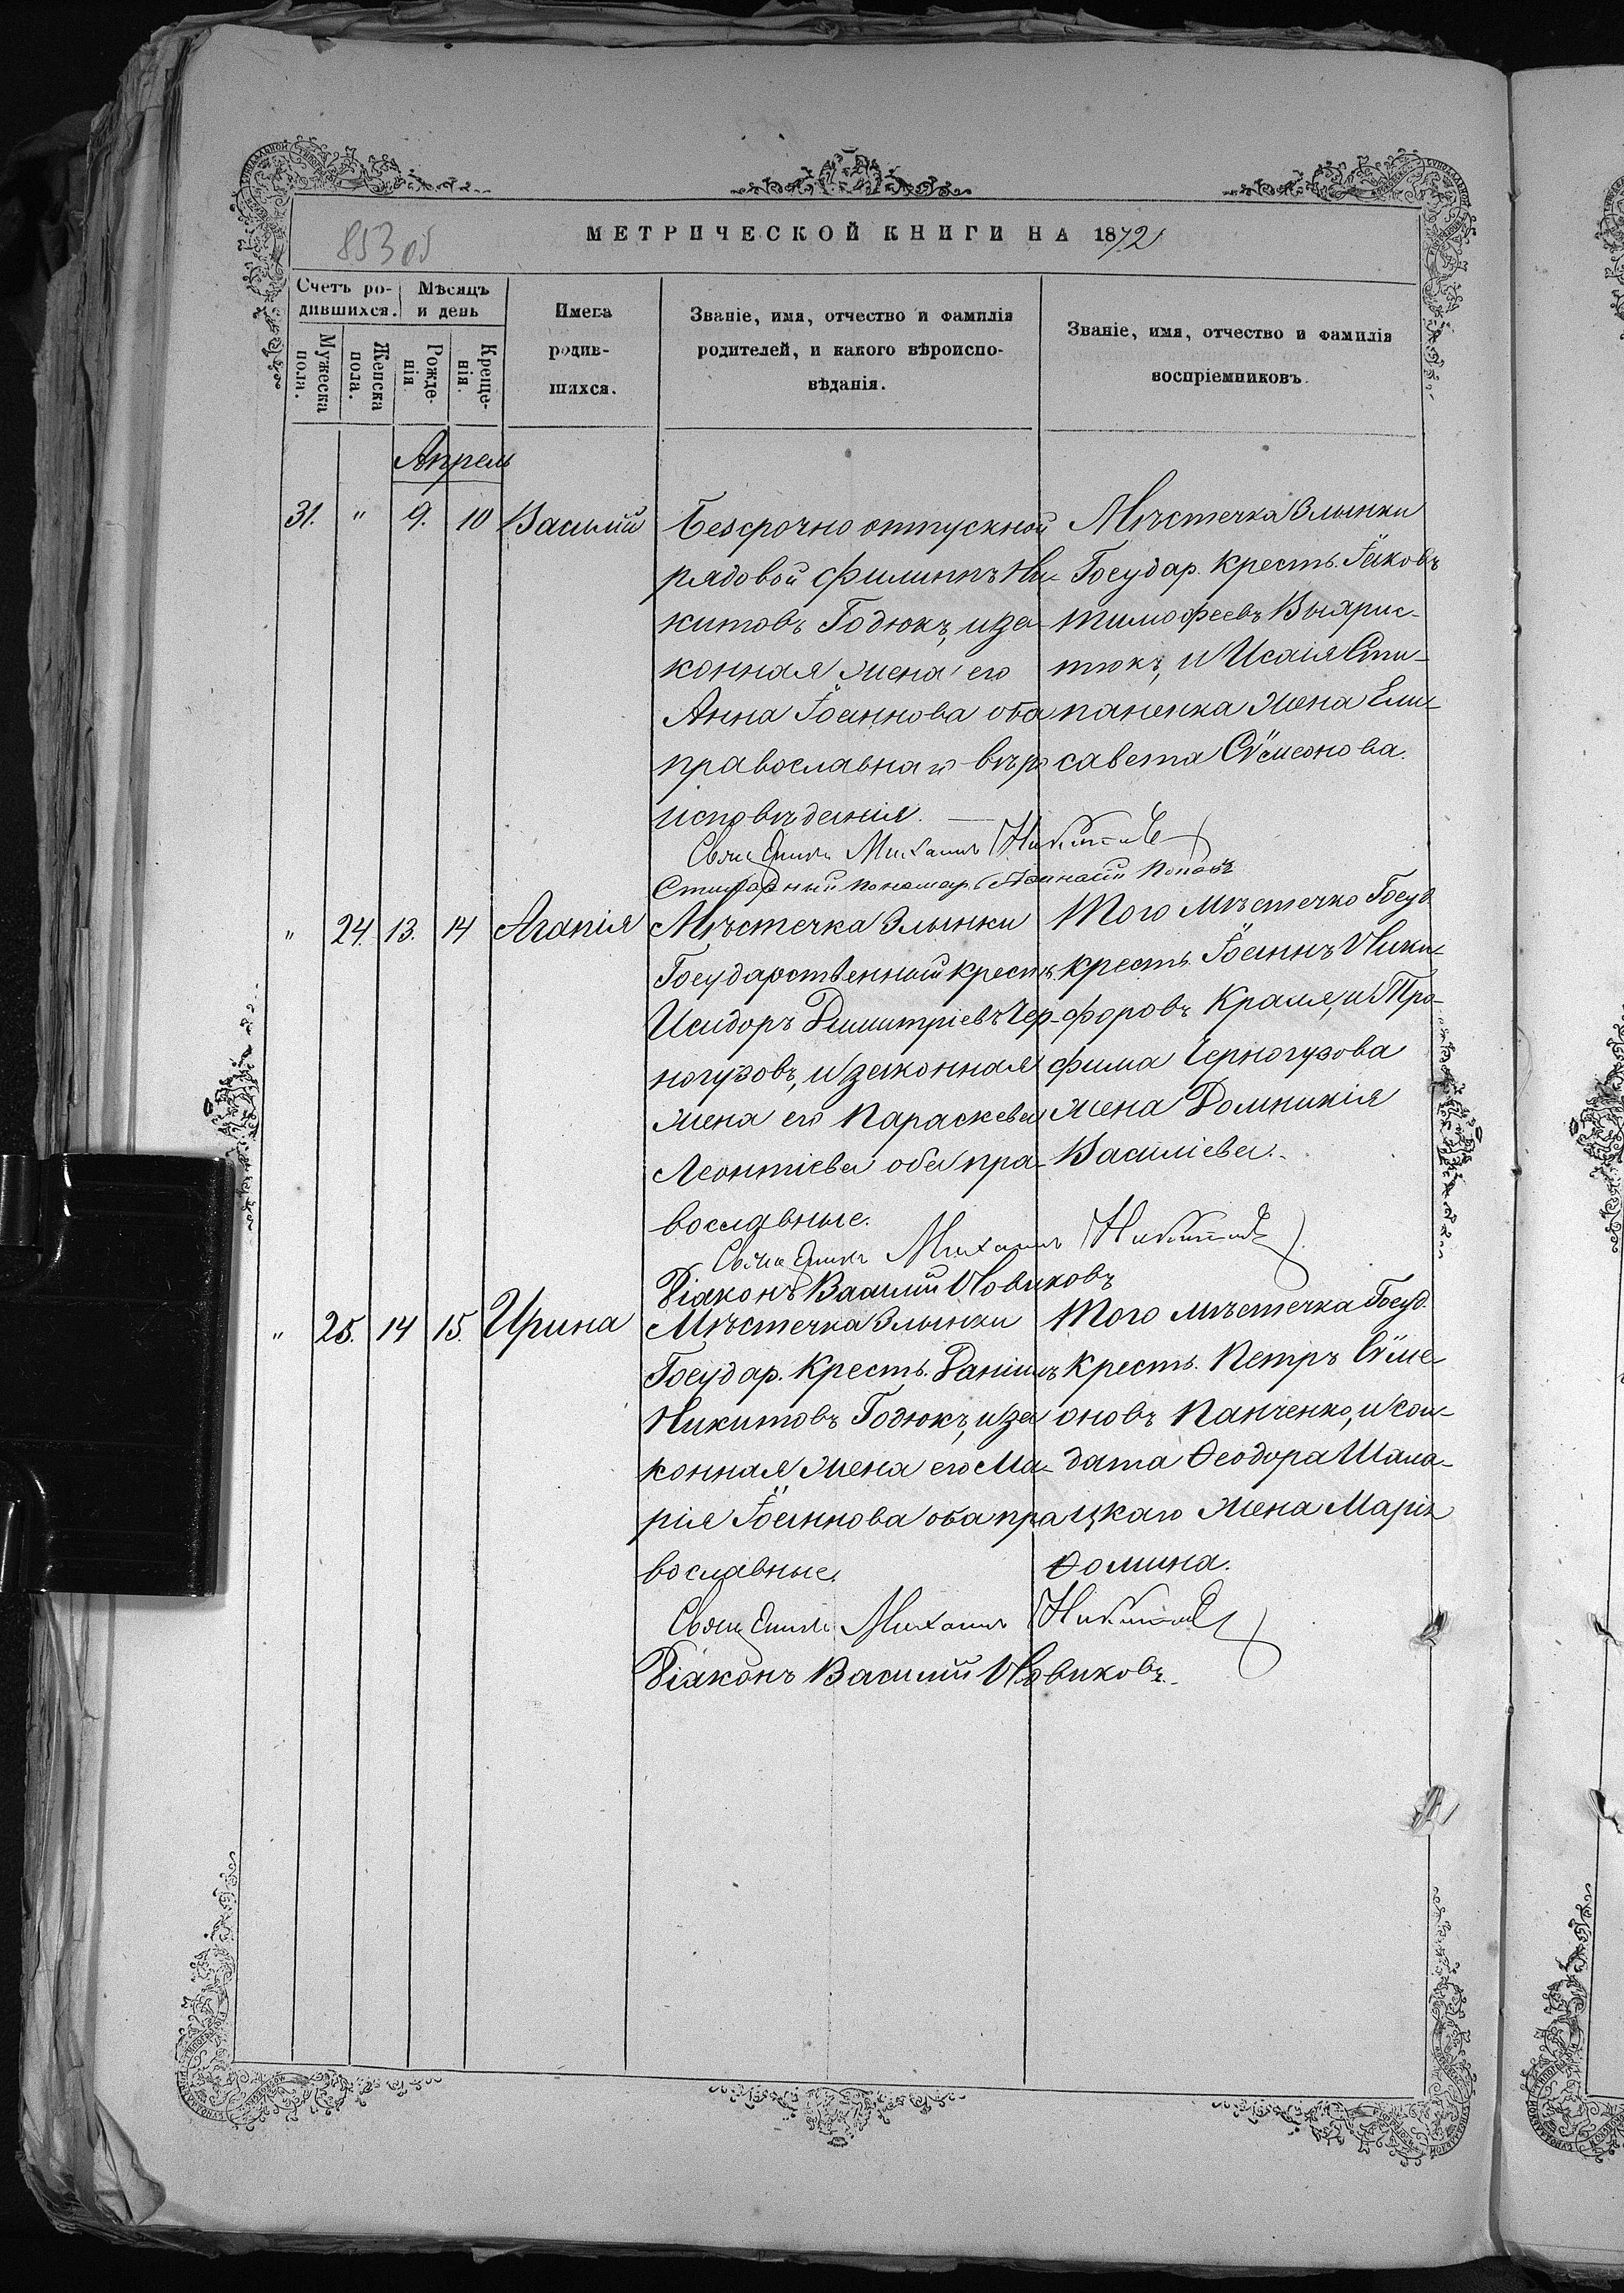 853 об
МЕТРИЧЕСКОЙ КНИГИ НА 1872
Счетъ ро-
дившихся.
Мѣсяцъ
и день
Мужеска
пола.
Женска
пола.
Рожде-
нія
Креще-
нія.
Имена
родив-
шихся.
Званіе, имя, отчество и фамилія
родителей, и какого вѣроиспо-
вѣданія.
Званіе, имя, отчество и фамилія
воспріемниковъ.
Апрель
31. " 9. 10 Василій
Безсрочно отпускной
рядовой Филиппъ Ни-
китовъ Годюкъ, и за-
конная жена его
Анна Іоаннова оба
православнаго вѣро
исповѣданія.
Мѣстечка Злынки
Государ. крестъ. Іаковъ
Тимофеевъ
тюкъ, и Исаія Сти-
паненка жена Ели-
савета Сѵмеонова.
Священникъ Михаилъ
пономарь Поповъ
" 24. 13. 14 Агапія
Мѣстечка Злынки
Государственный крестъ.
Исидоръ Димитріевъ Чер-
ногузовъ, и законная
жена его Параскева
Леонтіева оба пра-
вославные.
Того мѣстечко Госуд.
крестъ. Іоаннъ Ники-
форовъ Крамя, и Тро-
фима Черногузова
жена Домникія
Василіева.
Священникъ Михаилъ
Діаконъ Василій Новиковъ
" 25. 14 15. Ирина
Мѣстечка Злынки
Государ. Крестъ. Даніилъ
Никитовъ Годюкъ, и за
конная жена его Ма-
рія Іоаннова оба пра
вославные.
Того мѣстечка Госуд.
крестъ. Петръ Сѵме
оновъ Панченко, и сол-
дата Ѳеодора Шала-
цкаго жена Марія
Ѳомина.
Священникъ Михаилъ
Діаконъ Василій Новиковъ.